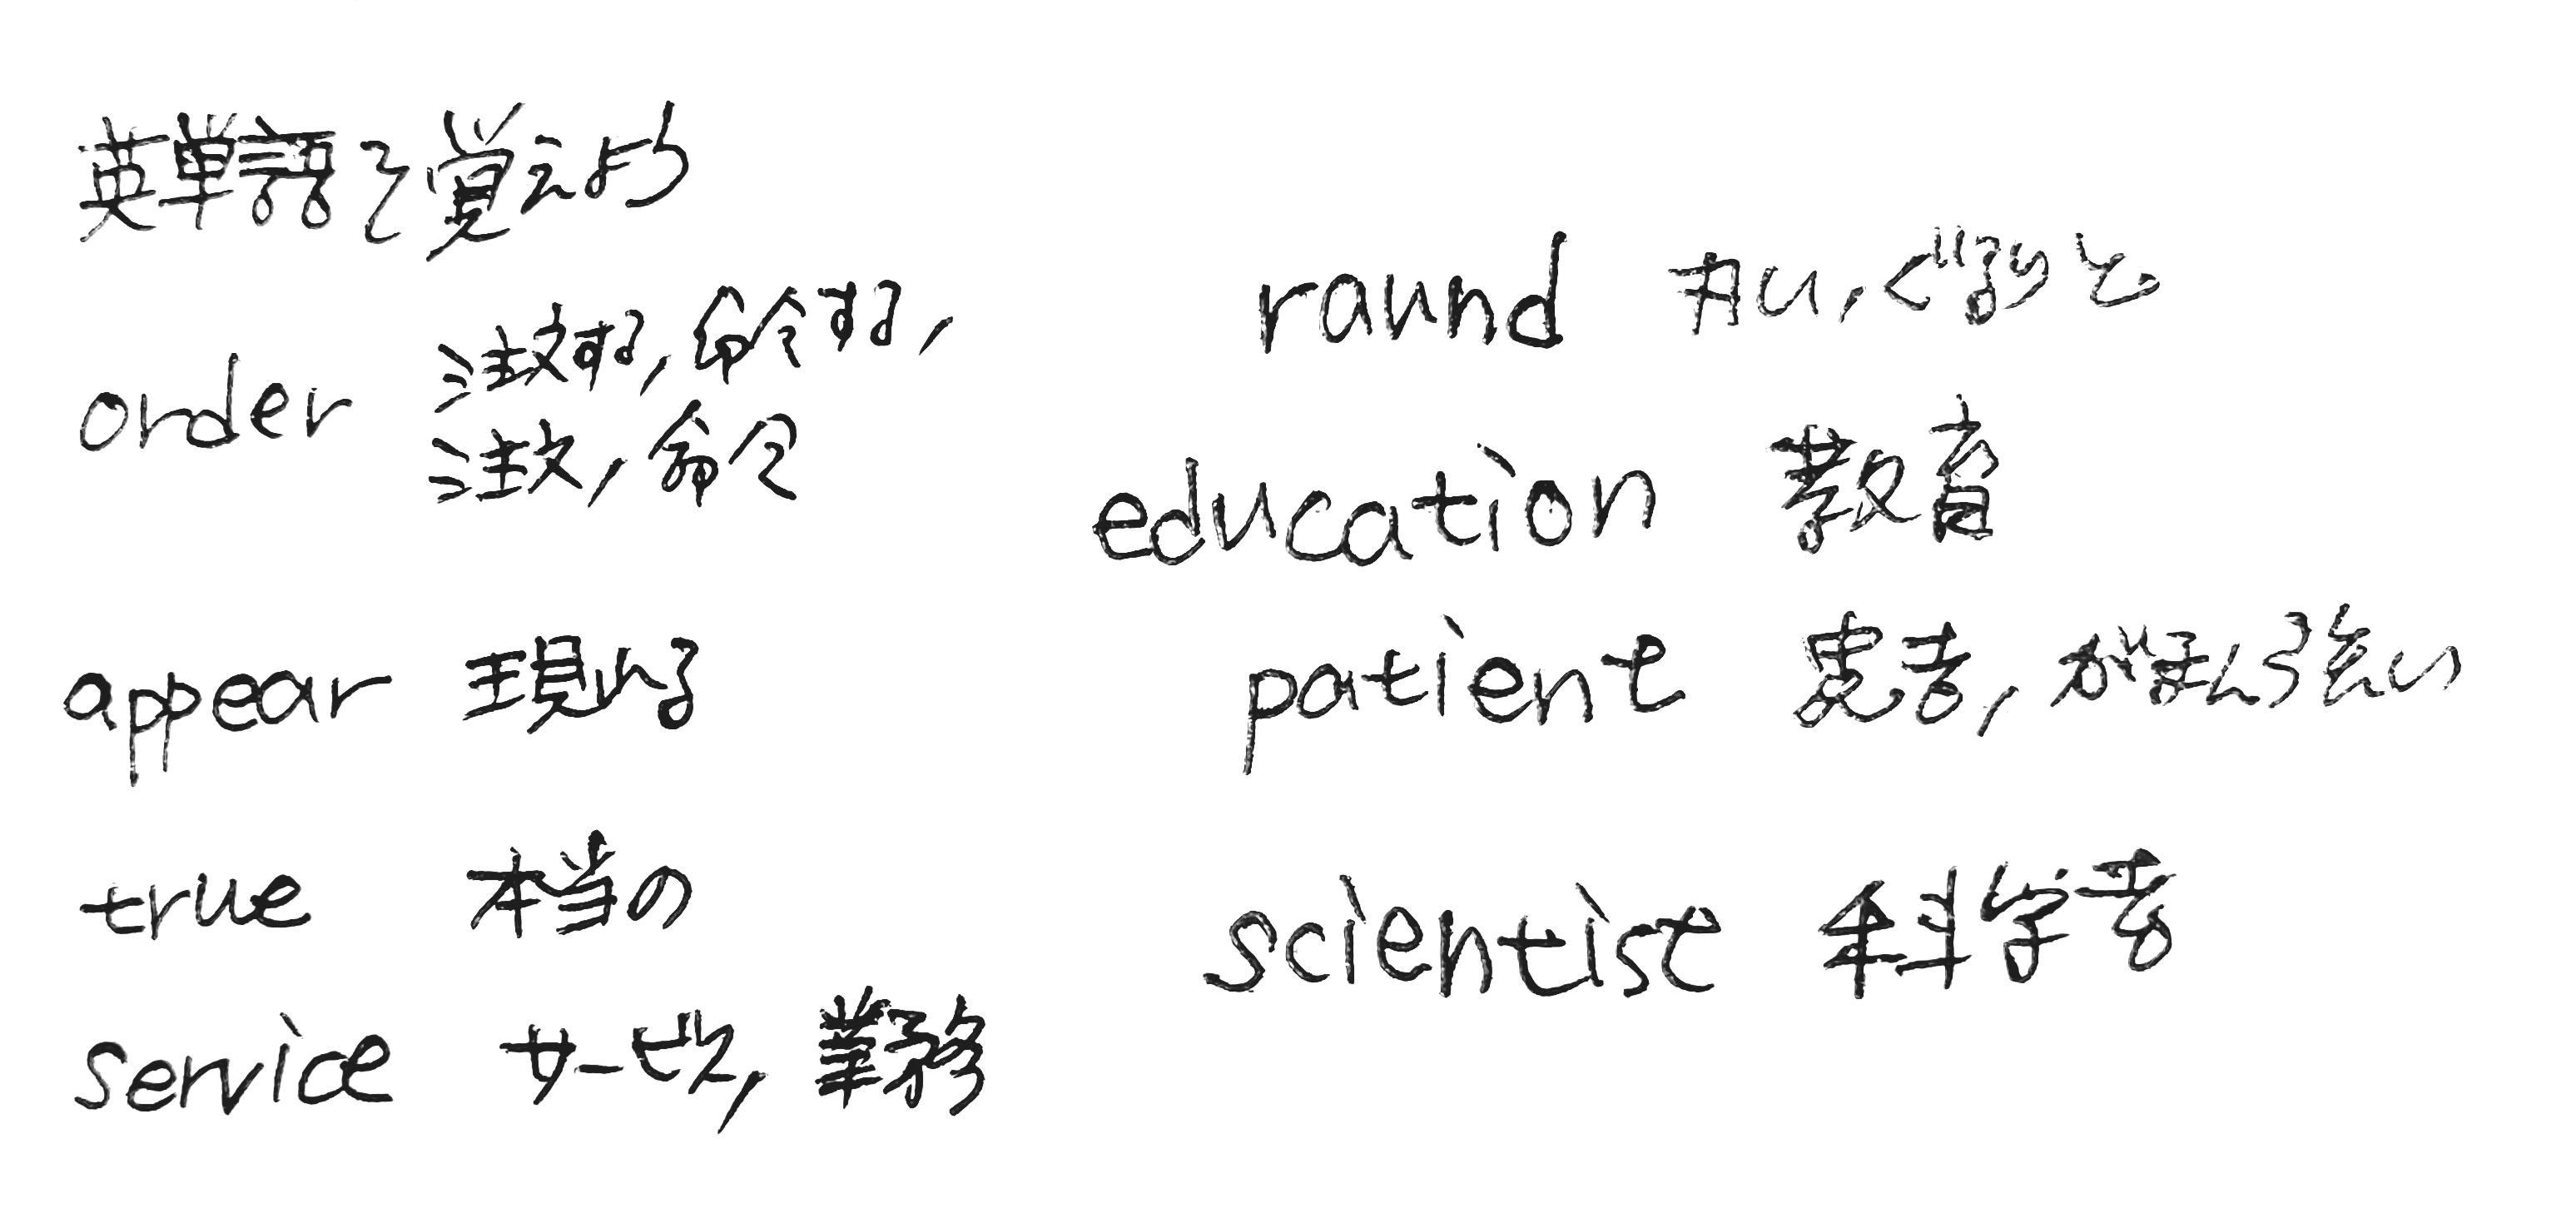 英単語を覚えよう
order 注文する,命令する,
注文,命令
appear 現れる
true 本当の
service サービス,業務
raund 丸い,ぐるりと
education 教育
patient 患者,がまん強い
scientist 科学者